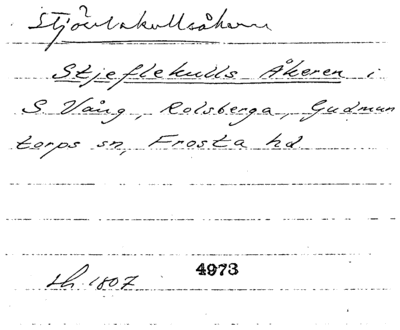 Stjävlakullsåkern
Stjeflekulls Åkeren i
S. Vång, Rolsberga, Gudmun
torps sn, Frosta hd
4973
Lh. 1807